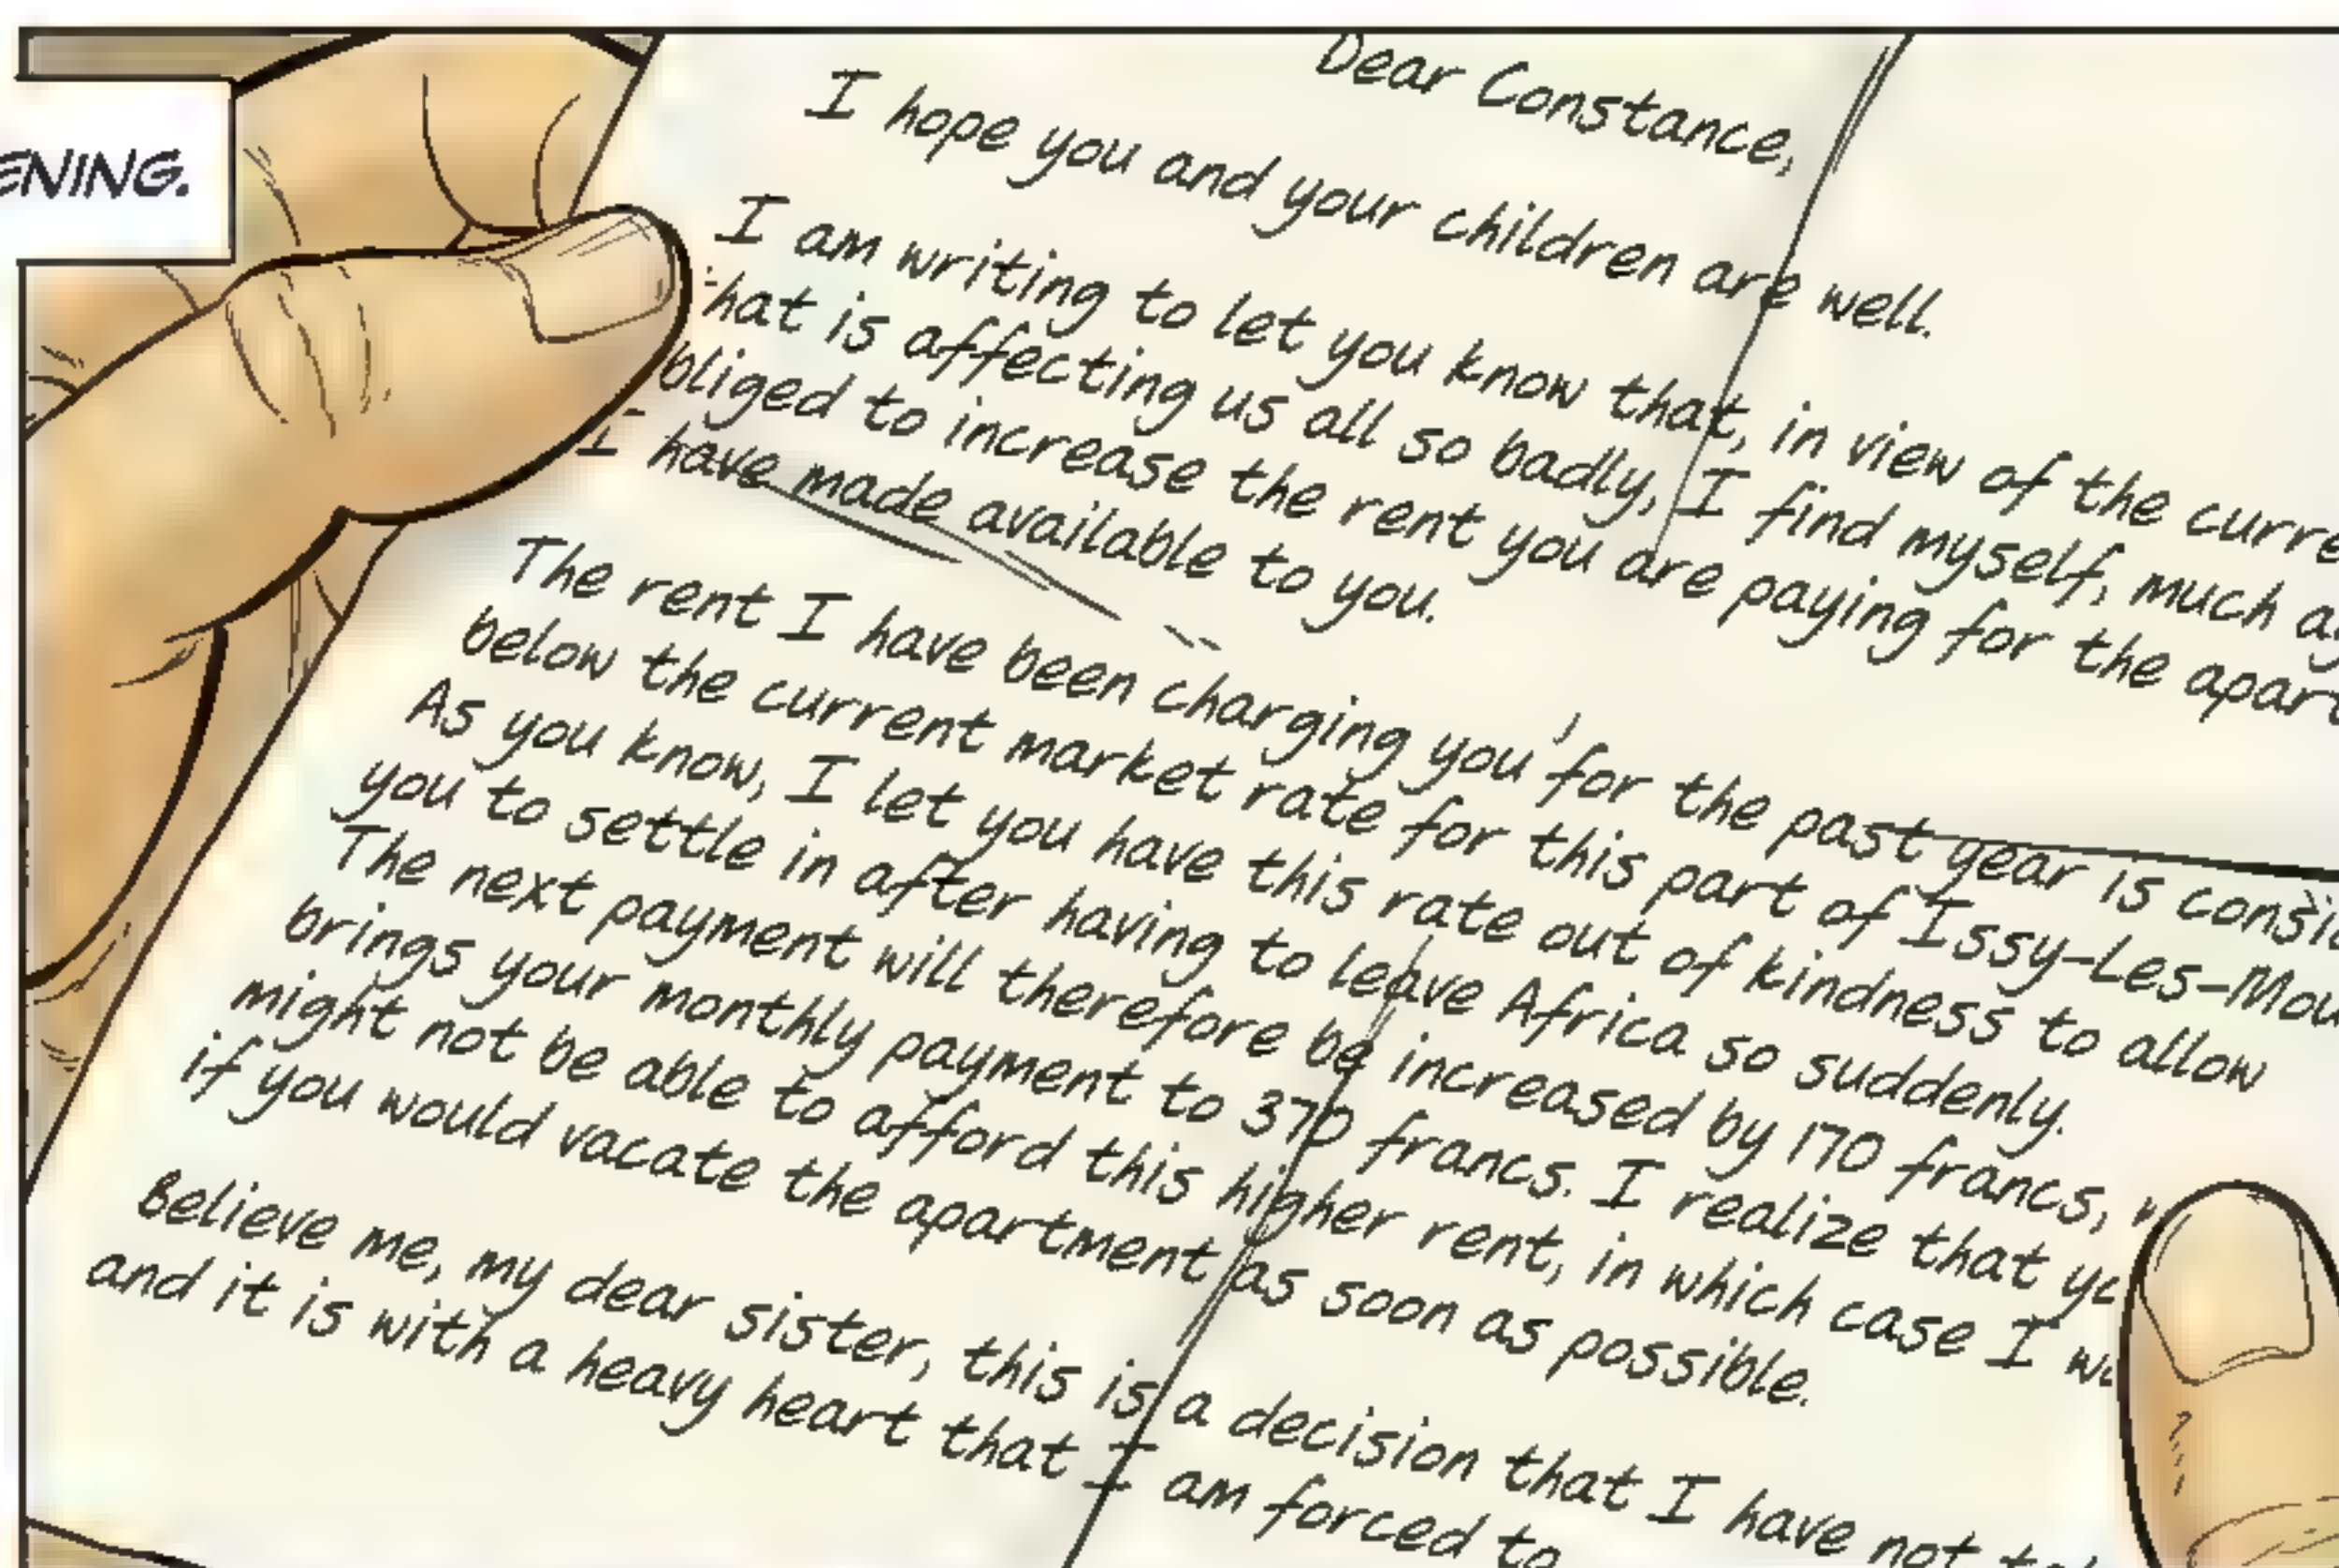 ENING.
Dear Constance,
I hope you and your children are well.
I am writing to let you know that, in view of the curre
hat is affecting us all so badly, I find myself, much ag
bliged to increase the rent you are paying for the apart
I have made available to you.
The rent I have been charging you for the past year is consid
below the current market rate for this part of Issy-Les-Mou
As you know, I let you have this rate out of kindness to allow
you to settle in after having to leave Africa so suddenly.
The next payment will therefore be increased by 170 francs, w
brings your monthly payment to 370 francs. I realize that yo
might not be able to afford this higher rent, in which case I wo
if you would vacate the apartment as soon as possible.
Believe me, my dear sister, this is a decision that I have not tak
and it is with a heavy heart that I am forced to